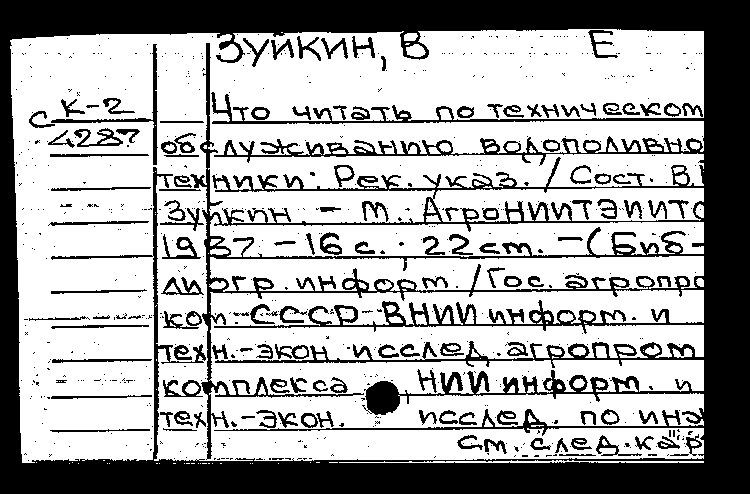 ЗУЙКИН, В Е
с К-2
4287
Что читать по техническом
обслуживанию водополивно
техники: Рек. указ. / Сост. В.
Зуйкин. - М.: АгроНИИТЭИИТО
1987. - 16 с.; 22 см. - (Биб-
лиогр. информ. / Гос. агропро
ком. СССР, ВНИИ информ. и
техн.-экон. исслед. агропром
комплекса НИИ информ. и
техн.-экон. исслед. по инж
см. след. кар